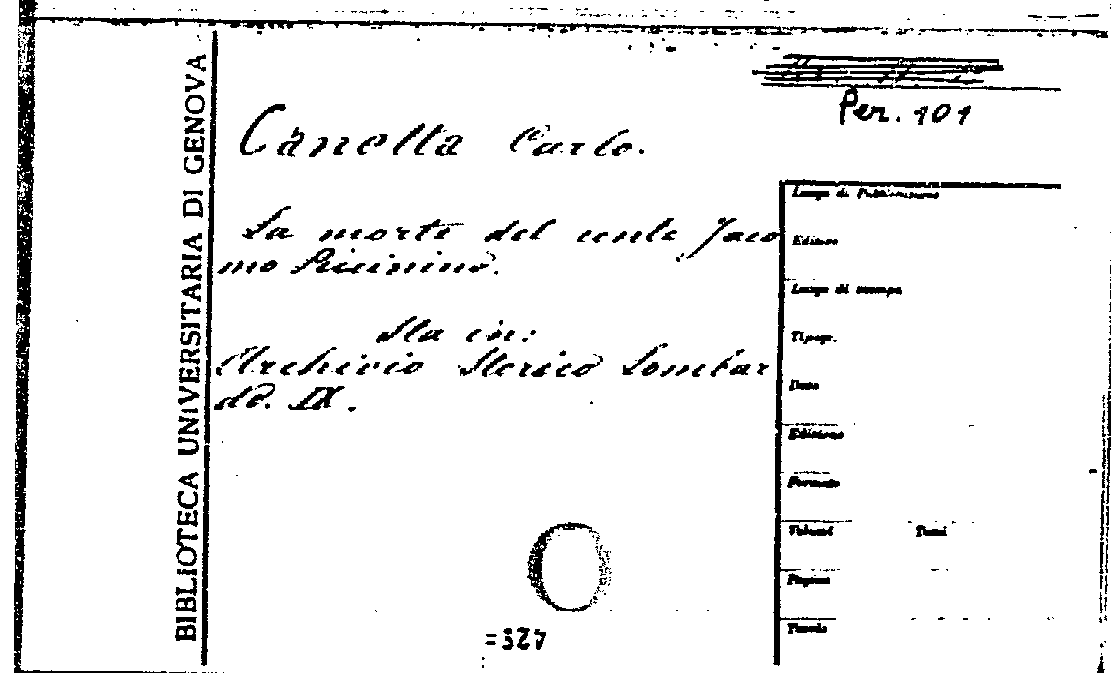 BIBLIOTECA UNIVERSITARIA DI GENOVA
Per. 101
Canetta Carlo.
La morte del conte Jaco
mo Piccinino.
Sta in:
Archivio Storico Lombar
do. IX.
Luogo di Pubblicazione
Editore
Luogo di stampa
Tipogr.
Data
Edizione
Formato
Volumi Tomi
Pagine
Tavole
=327